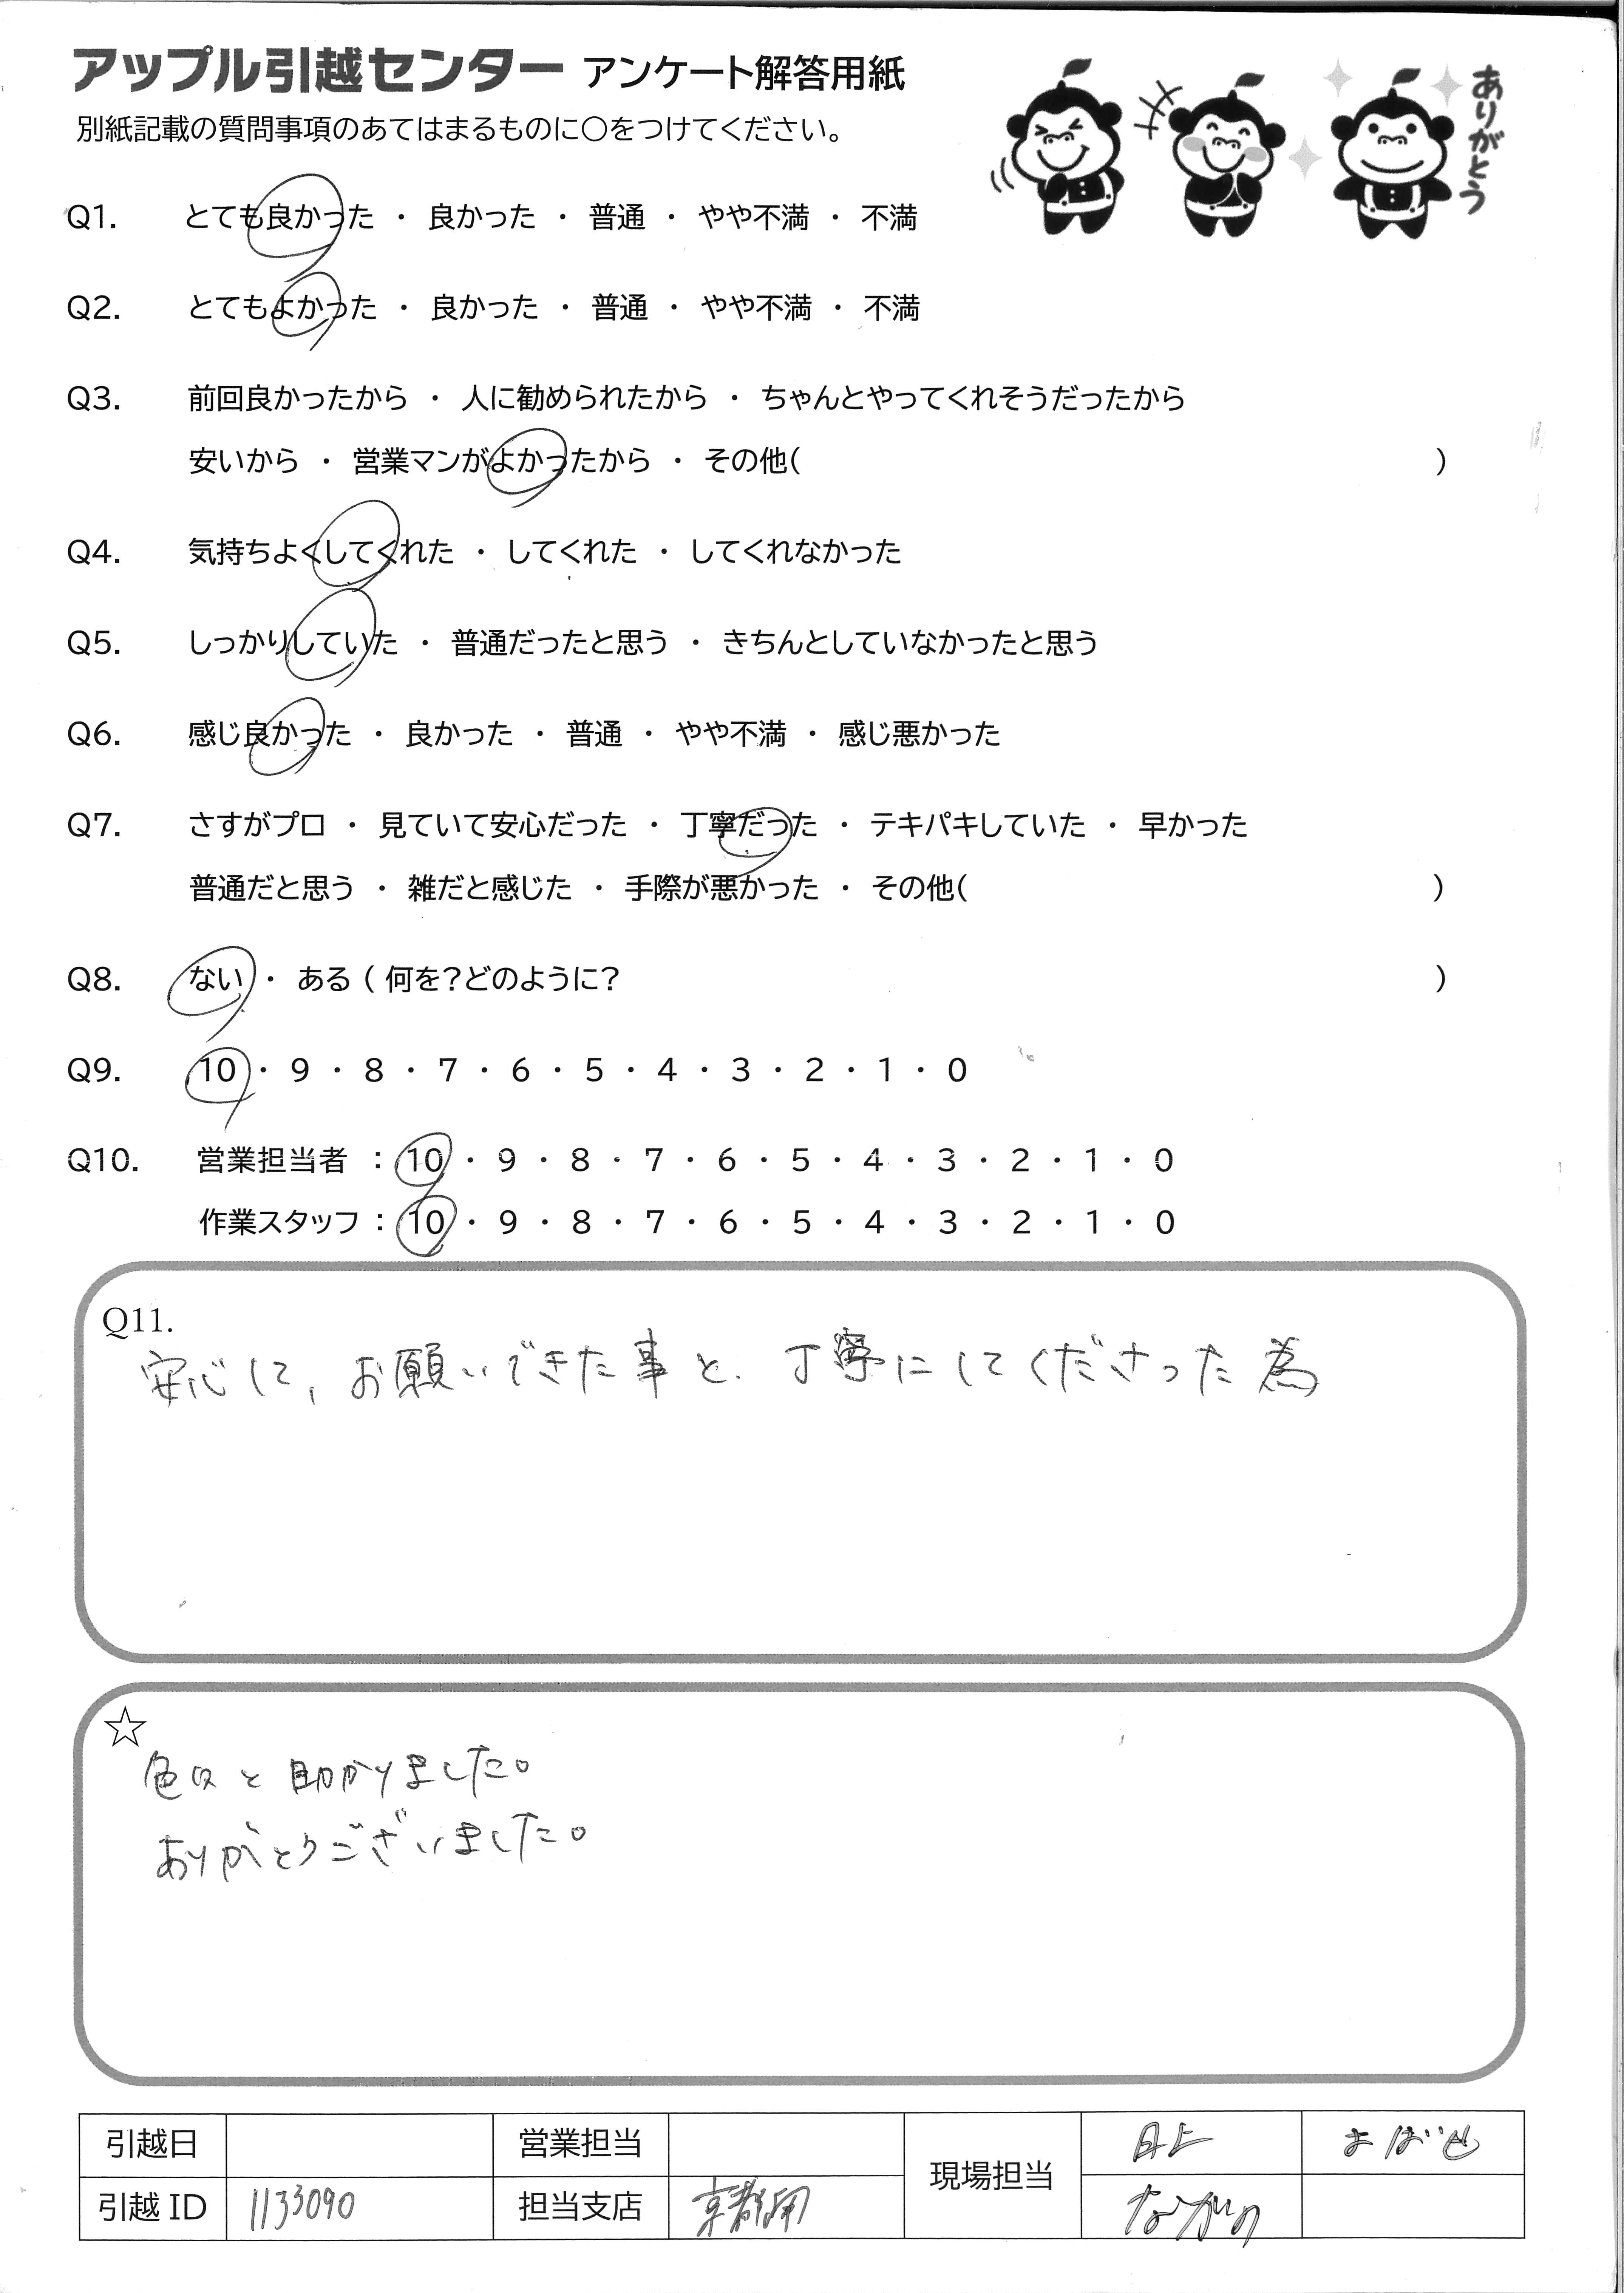 アップル引越センター アンケート解答用紙
ありがとう
別紙記載の質問事項のあてはまるものに○をつけてください。
Q1. とても良かった ・ 良かった ・ 普通 ・ やや不満 ・ 不満
Q2. とてもよかった ・ 良かった ・ 普通 ・ やや不満 ・ 不満
Q3. 前回良かったから ・ 人に勧められたから ・ ちゃんとやってくれそうだったから
安いから ・ 営業マンがよかったから ・ その他( )
Q4. 気持ちよくしてくれた ・ してくれた ・ してくれなかった
Q5. しっかりしていた ・ 普通だったと思う ・ きちんとしていなかったと思う
Q6. 感じ良かった ・ 良かった ・ 普通 ・ やや不満 ・ 感じ悪かった
Q7. さすがプロ ・ 見ていて安心だった ・ 丁寧だった ・ テキパキしていた ・ 早かった
普通だと思う ・ 雑だと感じた ・ 手際が悪かった ・ その他( )
Q8. ない ・ ある ( 何を?どのように? )
Q9. 10 ・ 9 ・ 8 ・ 7 ・ 6 ・ 5 ・ 4 ・ 3 ・ 2 ・ 1 ・ 0
Q10. 営業担当者 : 10 ・ 9 ・ 8 ・ 7 ・ 6 ・ 5 ・ 4 ・ 3 ・ 2 ・ 1 ・ 0
作業スタッフ : 10 ・ 9 ・ 8 ・ 7 ・ 6 ・ 5 ・ 4 ・ 3 ・ 2 ・ 1 ・ 0
Q11.
安心して、お願いできた事と、丁寧にしてくださった為
☆
色々と助かりました。
ありがとうございました。
引越日 営業担当 現場担当
引越 ID 1133090 担当支店 ながの